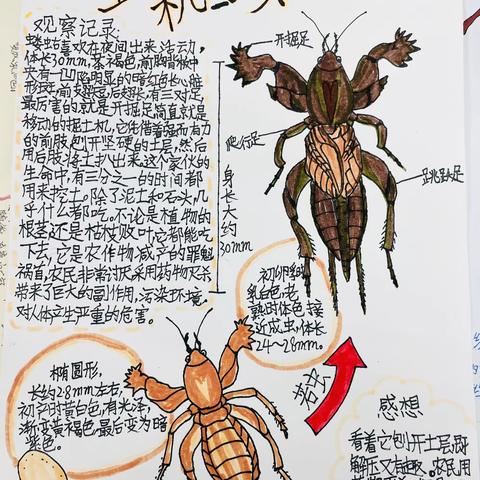 观察记录
蝼蛄喜欢在夜间出来活动,
体长30mm,茶褐色,前胸背板中
央有一凹陷明显的暗红色长心脏
形斑,前翅短,后翅长,有三对足。
最厉害的就是开掘足,简直就是
移动的掘土机,它凭借着强而有力
的前肢刨开坚硬的土层,然后
用后肢将土扒出来,这个家伙的
生命中,有三分之一的时间都
用来挖土。除了泥土和石头,几
乎什么都吃。不论是植物的
根茎还是枯枝败叶,它都能吃
下去,它是农作物减产的罪魁
祸首,农民非常讨厌,采用药物灭杀
带来了巨大的副作用,污染环境,
对人体产生严重的危害。
开掘足
爬行足
跳跃足
身长大约
30mm
初孵时
乳白色,老
熟时体色接
近成虫,体长
24~28mm。
椭圆形,
长约2.8mm左右,
初产时黄白色,有光泽,
渐变黄褐色,最后变为暗
紫色。
若虫
感想
看着它刨开土层,既
解压又有趣。农民用